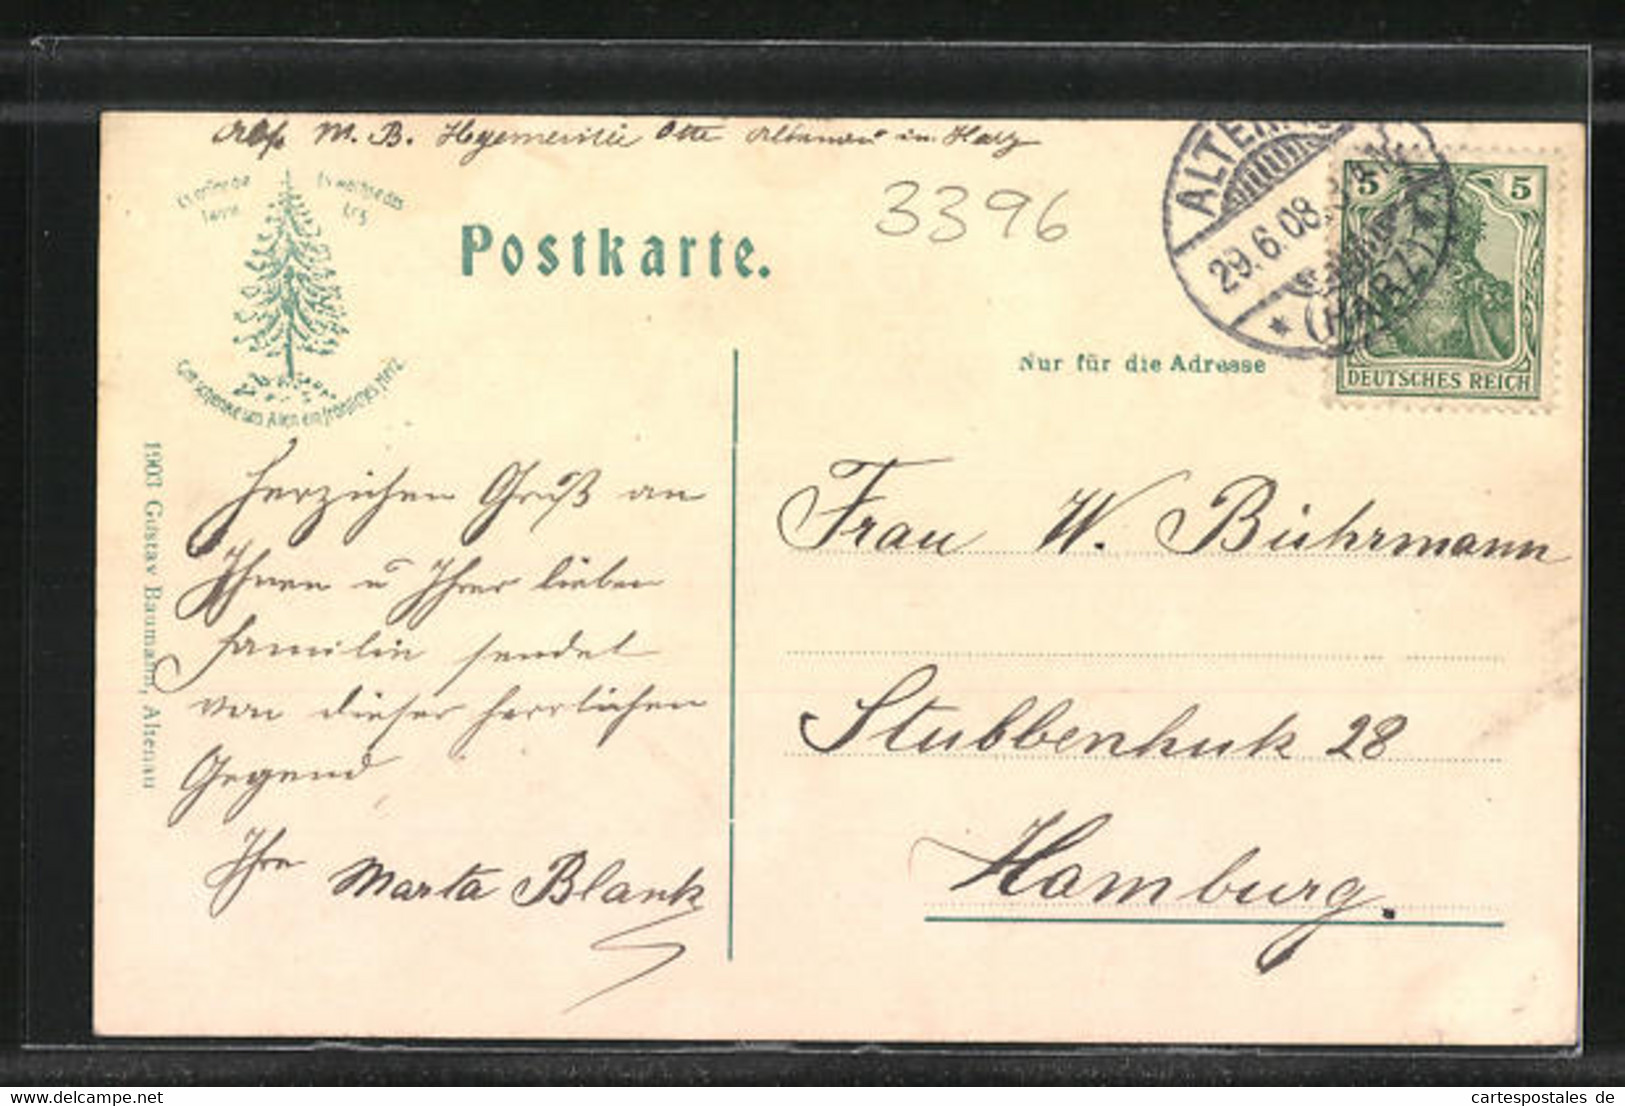 Abs. M. B. Hegemeister Otte Altenau im Harz
Es grüne die Tanne
Es wachse das Erz
Gott schenke uns Allen ein fröhliches Herz.
Postkarte.
3396
ALTENAU
29.6.08.
* (HARZ)
5 5
DEUTSCHES REICH
Nur für die Adresse
1903 Gustav Baumann, Altenau
Herzichen Gruß an
Ihnen u Ihrer lieben
Familie sendet
von dieser herrlichen
Gegend
Ihre Marta Blank
Frau W. Buhrmann
Stubbenhuk 28
Hamburg.
www.cartespostales.de
cartespostales de